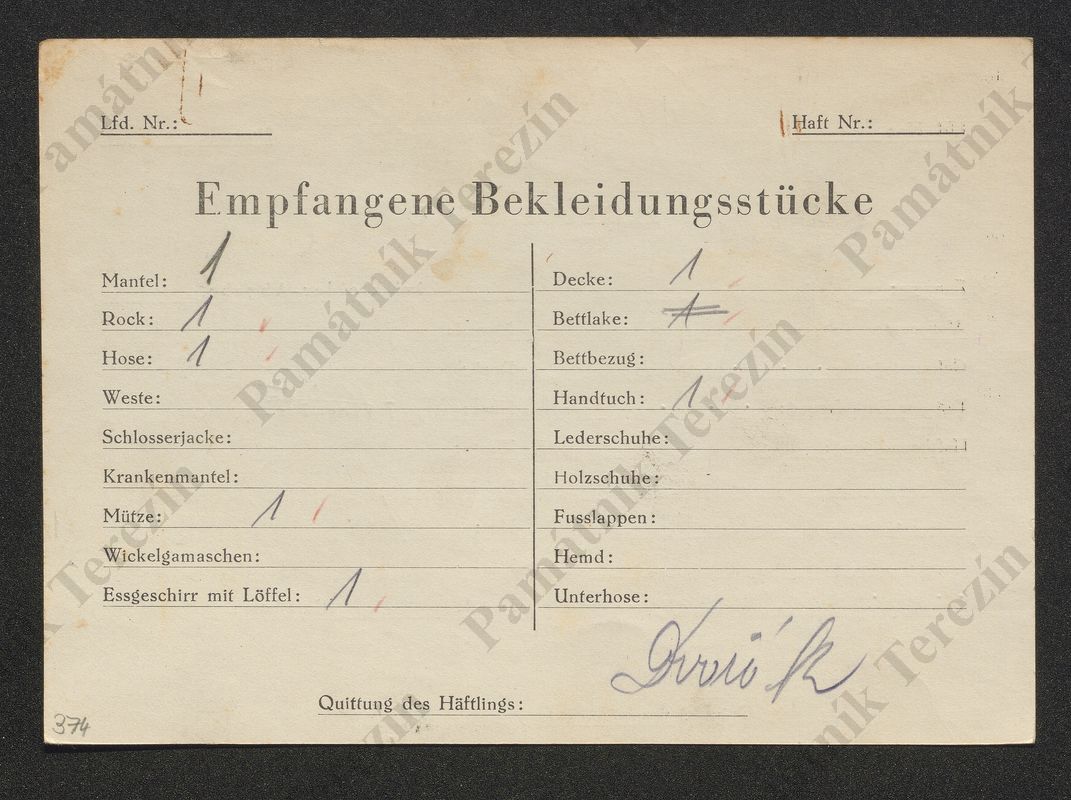 Lfd. Nr.:
Haft Nr.:
Empfangene Bekleidungsstücke
Mantel: 1
Rock: 1
Hose: 1
Weste:
Schlosserjacke:
Krankenmantel:
Mütze: 1
Wickelgamaschen:
Essgeschirr mit Löffel: 1
Decke: 1
Bettlake: 1
Bettbezug:
Handtuch: 1
Lederschuhe:
Holzschuhe:
Fusslappen:
Hemd:
Unterhose:
Dvořák
Quittung des Häftlings:
374
Památník Terezín
Památník Terezín
Památník Terezín
Památník Terezín
Památník Terezín